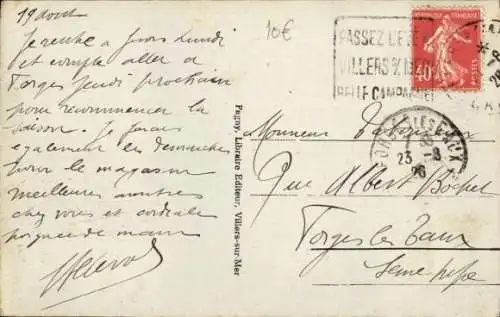 19 Aout
Je rentre à Paris Lundi
et compte aller à
Forges jeudi prochain
pour recommencer la
saison. Je ferais
également les demarches
pour le magasin
meilleures
chez vous et cordiale
poignée de main
Pagny, Libraire Editeur, Villers-sur-Mer
10€
PASSEZ L'ÉTÉ
VILLERS S/
BELLE CAMPAGNE
RÉPUBLIQUE FRANÇAISE
40c
POSTES
23 -8
26
Monsieur
Rue Albert Bochet
Forges les Eaux
Seine Infre